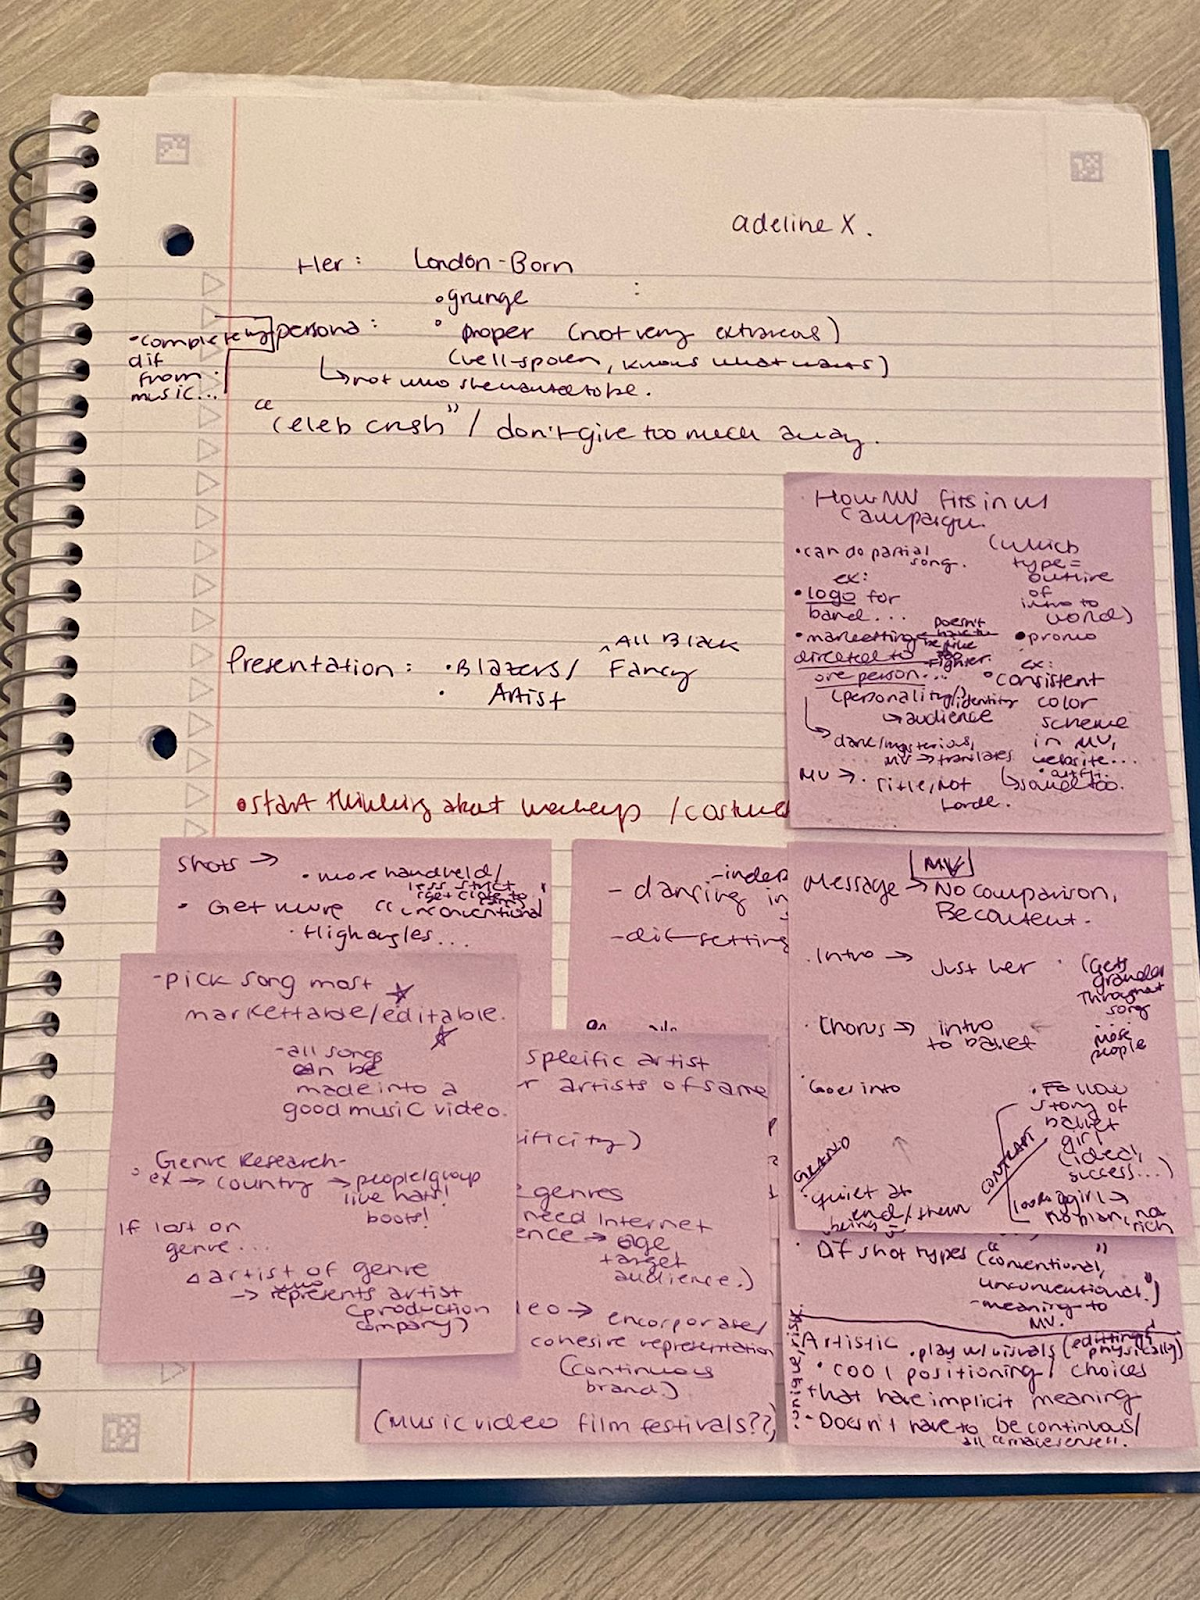 adeline X.
Her: London-Born
• grunge
persona: • proper (not very extraneous)
(well-spoken, knows what wants)
↳ not who she wanted to be.
• completely
dif
from
music...
"Celeb crush" / don't give too much away.
Presentation: • Blazers / ^All Black Fancy
• Artist
• start thinking about makeup / costumes
How MV fits in w/
Campaign
• can do partial
song.
ex:
• logo for
band...
• marketting
directed to
one person...
(personality/identity
↳ audience
↳ dark/mysterious,
MV → translates
MV → • Title, not
(which
type =
outline
of
intro to
world)
• promo
ex:
• consistent
color
scheme
in MV,
website...
Shots →
• more handheld/
less strict
• Get more "unconventional"
• High angles...
- dancing in
- dif setting
MV
Message → No comparison,
Be content.
• Intro → Just her
• (Gets
grander
throughout
song
...
more
people
• Chorus → intro
to ballet
• Goes into
GRAND
• quiet at
end / them
being
• Follow
story of
ballet
girl
(ideal,
success...)
CONTRAST
girl →
no plan, not
rich
- pick song most
markettable/editable.
- all songs
can be
made into a
good music video.
• Genre Research-
ex → country → people/group
live hats!
boots!
If lost on
genre...
artist of genre
→ represents artist
(production
company)
specific artist
artists of same
ificity)
genres
need internet
ence → age
target
audience.)
eo → encorporate/
cohesive representation
(continuous
brand.)
(Music video film festivals??)
• Dif shot types ("conventional,
unconventional")
- meaning to
MV.
Artistic • play w/ visuals (editting &
physically)
• cool positioning/choices
that have implicit meaning
• Doesn't have to be continuous/
all "make sense".